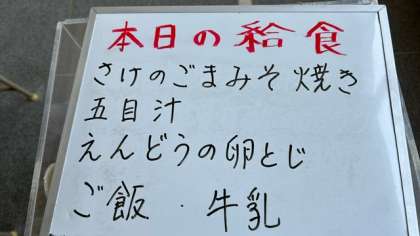 本日の給食
さけのごまみそ焼き
五目汁
えんどうの卵とじ
ご飯・牛乳